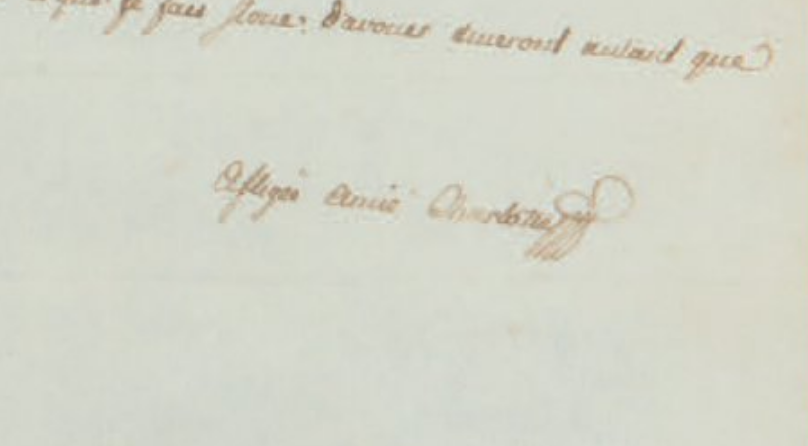 que je fais gloire d'avouer aimeront autant que
affligée amie Charlotte